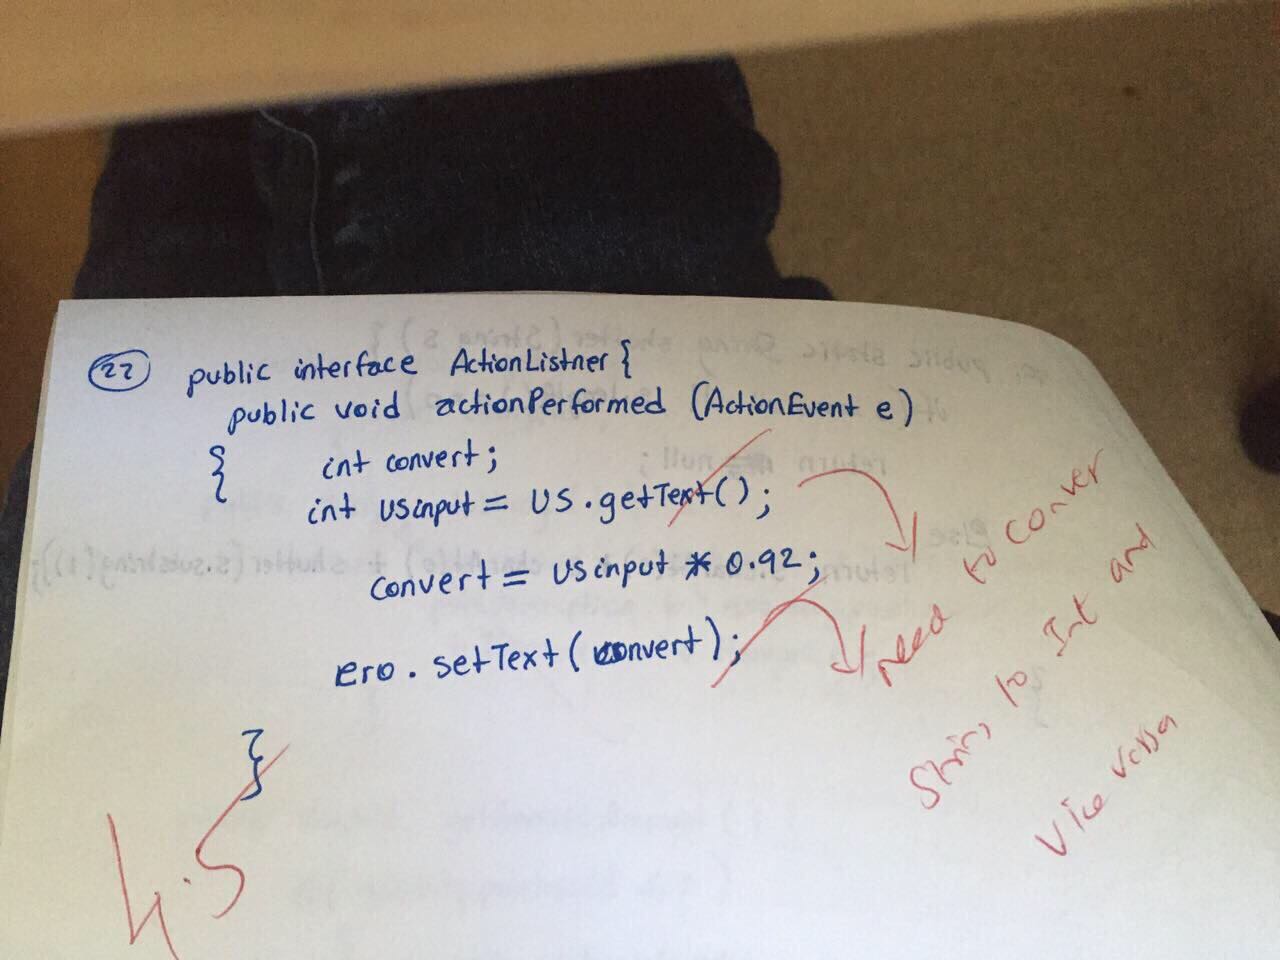 22
public interface ActionListner {
public void actionPerformed (ActionEvent e)
{ int convert;
int usinput = US.getText();
convert = usinput * 0.92;
ero.setText(convert);
}
need to conver
String to Int and
Vice versa
4.5